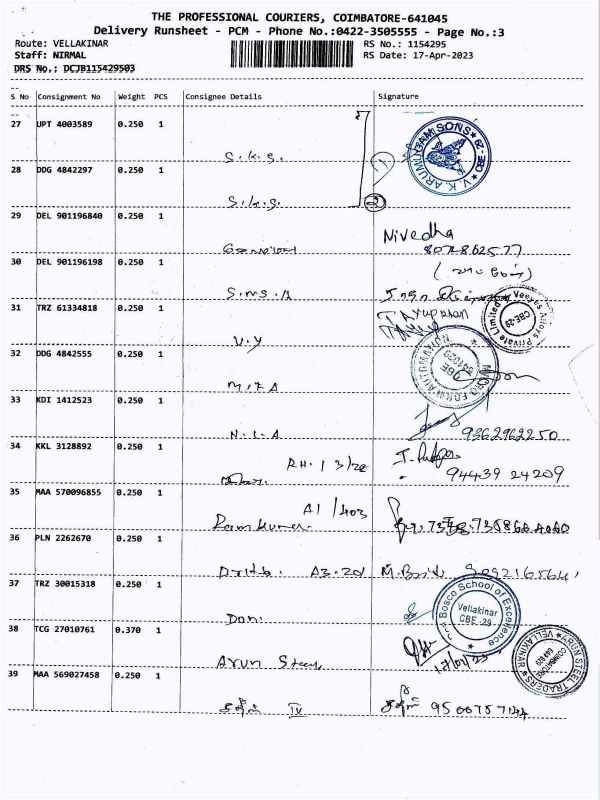 THE PROFESSIONAL COURIERS, COIMBATORE-641045
Delivery Runsheet - PCM - Phone No.:0422-3505555 - Page No.:3
Route: VELLAKINAR
RS No.: 1154295
Staff: NIRMAL
RS Date: 17-Apr-2023
DRS No.: DCJB115429503
S No Consignment No Weight PCS Consignee Details Signature
27 UPT 4003589 0.250 1
S.K.S.
V.K. ARUMUGAM SONS CBE-29
28 DDG 4842297 0.250 1
S.K.S. 2
29 DEL 901196840 0.250 1
Nivedha
30 DEL 901196198 0.250 1
S.M.S.A
31 TRZ 61334818 0.250 1
V.Y
Veeyes Alloys Private Limited CBE-29
32 DDG 4842555 0.250 1
M.F.A
MICRO FORM AUTOMATION CBE 641029
33 KDI 1412523 0.250 1
N.L.A 9362962250
34 KKL 3128892 0.250 1
94439 24209
35 MAA 570096855 0.250 1
A1/403
Ramkumar.
36 PLN 2262670 0.250 1
A3.201
37 TRZ 30015318 0.250 1
Don
Don Bosco School of Excellence Vellakinar CBE-29
38 TCG 27010761 0.370 1
Arun Steel
17/04/23
ARUN STEEL TRADERS VELLAKINAR COIMBATORE 641 029
39 MAA 569027458 0.250 1
IV 9500757144